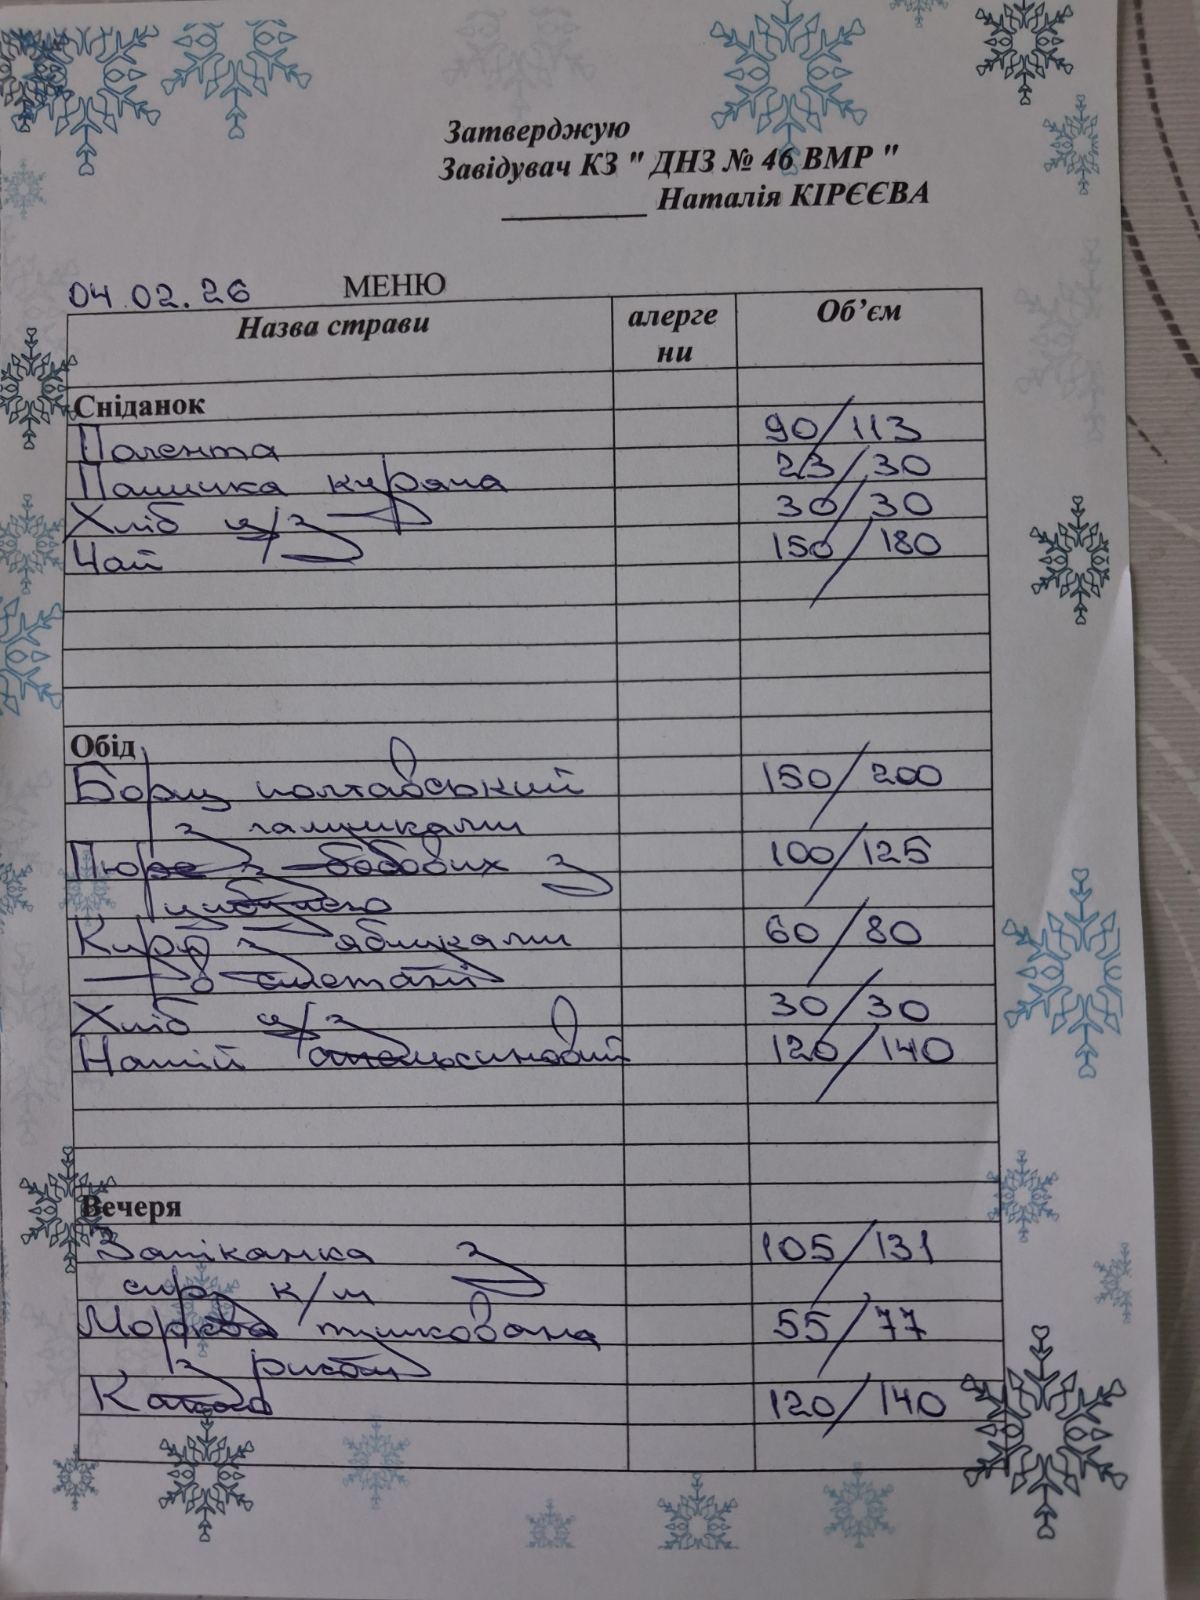 Затверджую
Завідувач КЗ " ДНЗ № 46 ВМР "
Наталія КІРЄЄВА
04.02.26 МЕНЮ
Назва страви алергени Об’єм
Сніданок
Полента 90/113
Паличка куряча 23/30
Хліб ц/з 30/30
Чай 150/180
Обід
Борщ полтавський 150/200
з галушками
Пюре з бобових з 100/125
цибулею
Курка з яблуками 60/80
в сметані
Хліб ц/з 30/30
Напій апельсиновий 120/140
Вечеря
Запіканка з 105/131
сиру к/м
Морква тушкована 55/77
з рисом
Какао 120/140